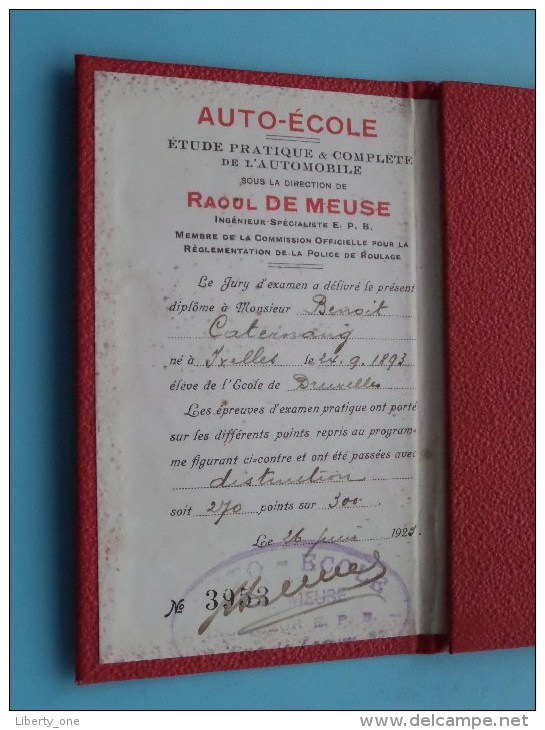 AUTO-ÉCOLE
ÉTUDE PRATIQUE & COMPLÈTE
DE L'AUTOMOBILE
SOUS LA DIRECTION DE
RAOUL DE MEUSE
INGÉNIEUR-SPÉCIALISTE E. P. B.
MEMBRE DE LA COMMISSION OFFICIELLE POUR LA
RÉGLEMENTATION DE LA POLICE DE ROULAGE
Le Jury d'examen a délivré le présent
diplôme à Monsieur Benoit
né à Ixelles le 24.9.1893
élève de l'École de Bruxelles
Les épreuves d'examen pratique ont porté
sur les différents points repris au program-
me figurant ci=contre et ont été passées avec
distinction
soit 270 points sur 300
Le 26 juin 192
No 3953
AUTO-ÉCOLE
MEUSE
E. P. B.
Liberty_one
www.delcampe.net